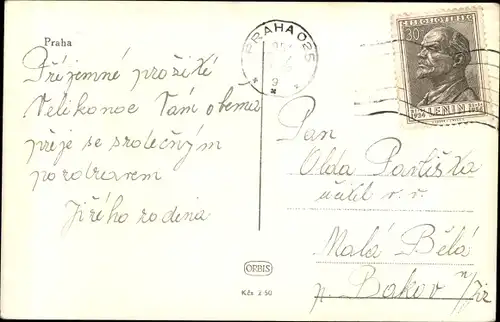 Praha
Příjemné prožité
Velikonoce Vám oběma
přeje se srdečným
pozdravem
Jiřího rodina
PRAHA 025
ČESKOSLOVENSKO
30
LENIN
Pan
Olda Partiška
učitel v. v.
Malá Bělá
p. Bakov n/Jiz
ORBIS
Kčs 2·50